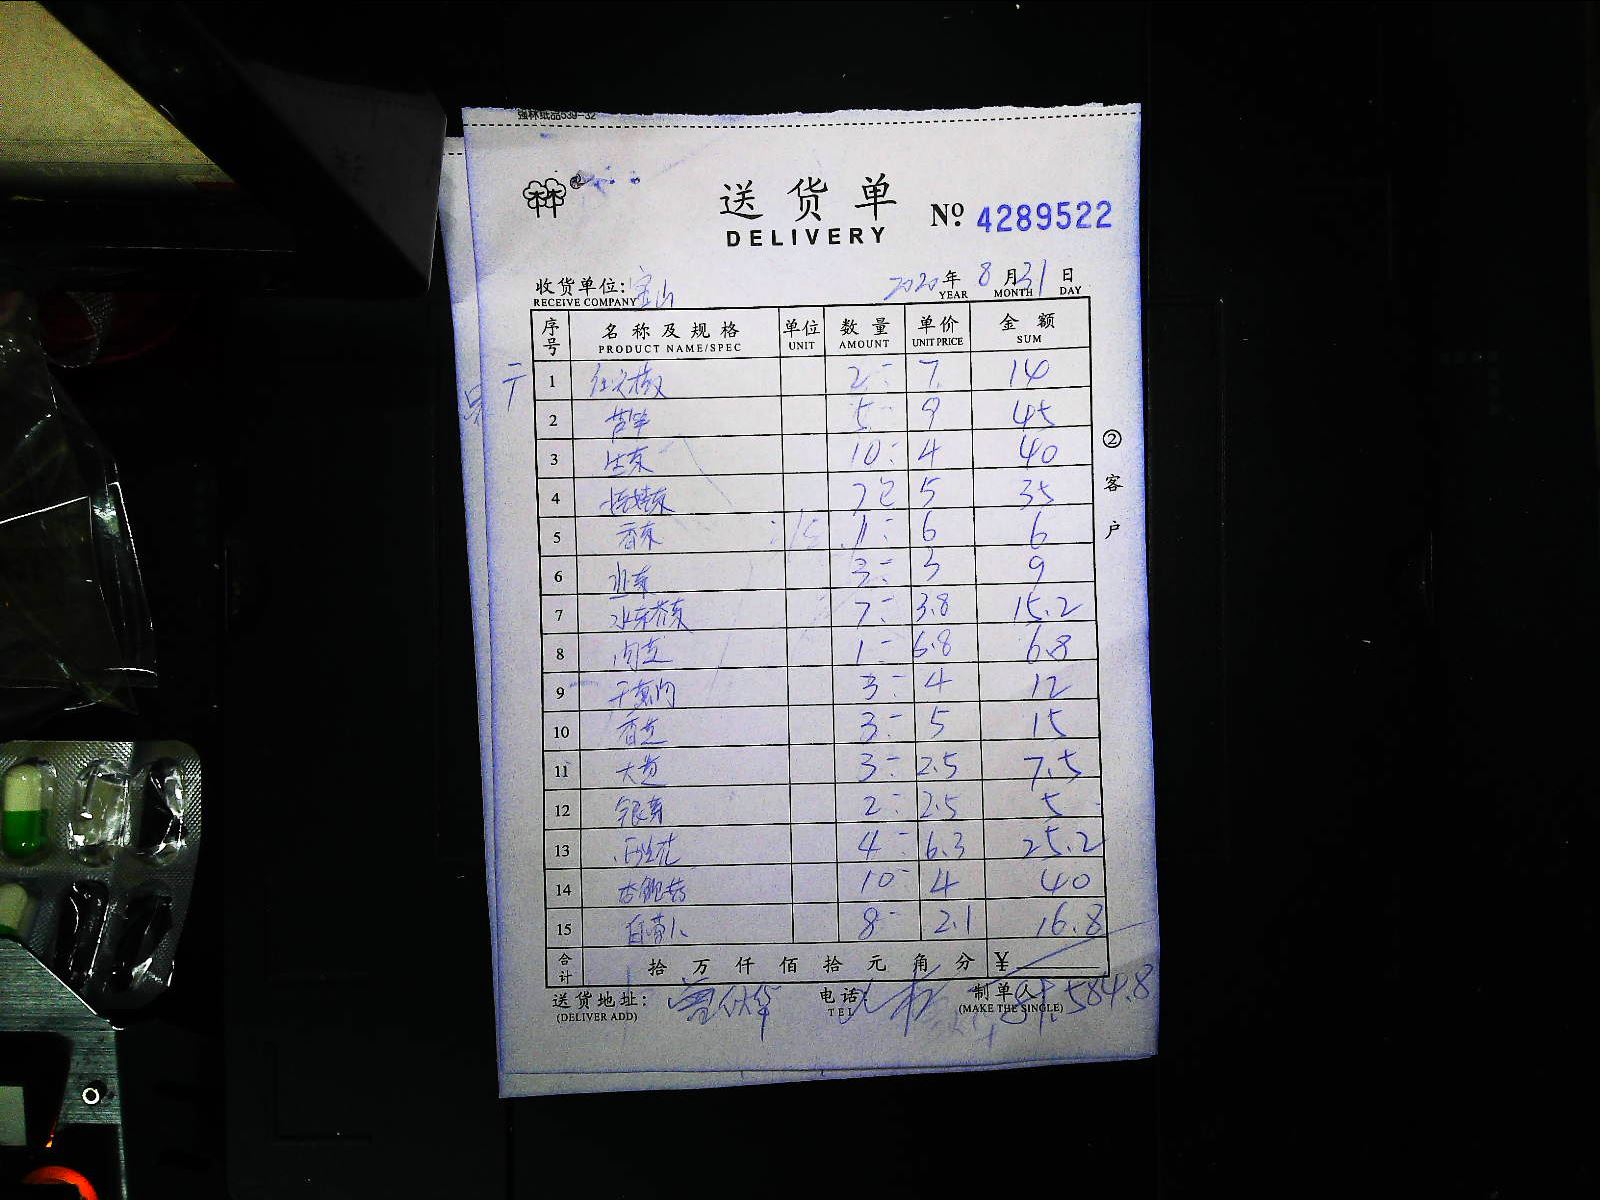 强林纸品539-32
送货单
DELIVERY
No. 4289522
收货单位: 宝山
RECEIVE COMPANY
2020年 8月31日
YEAR MONTH DAY
序号 名称及规格 单位 数量 单价 金额
PRODUCT NAME/SPEC UNIT AMOUNT UNIT PRICE SUM
1 2 7 14
2 5 9 45
3 生菜 10 4 40
4 5 35
5 香菜 1 6 6
6 3 3 9
7 水东芥菜 7 3.8 15.2
8 1 6.8 6.8
9 3 4 12
10 3 5 15
11 3 2.5 7.5
12 银芽 2 2.5 5
13 西兰花 4 6.3 25.2
14 杏鲍菇 10 4 40
15 白萝卜 8 2.1 16.8
合计 拾 万 仟 佰 拾 元 角 分 ¥
送货地址:
(DELIVER ADD)
电话:
TEL
制单人
(MAKE THE SINGLE)
584.8
②客户